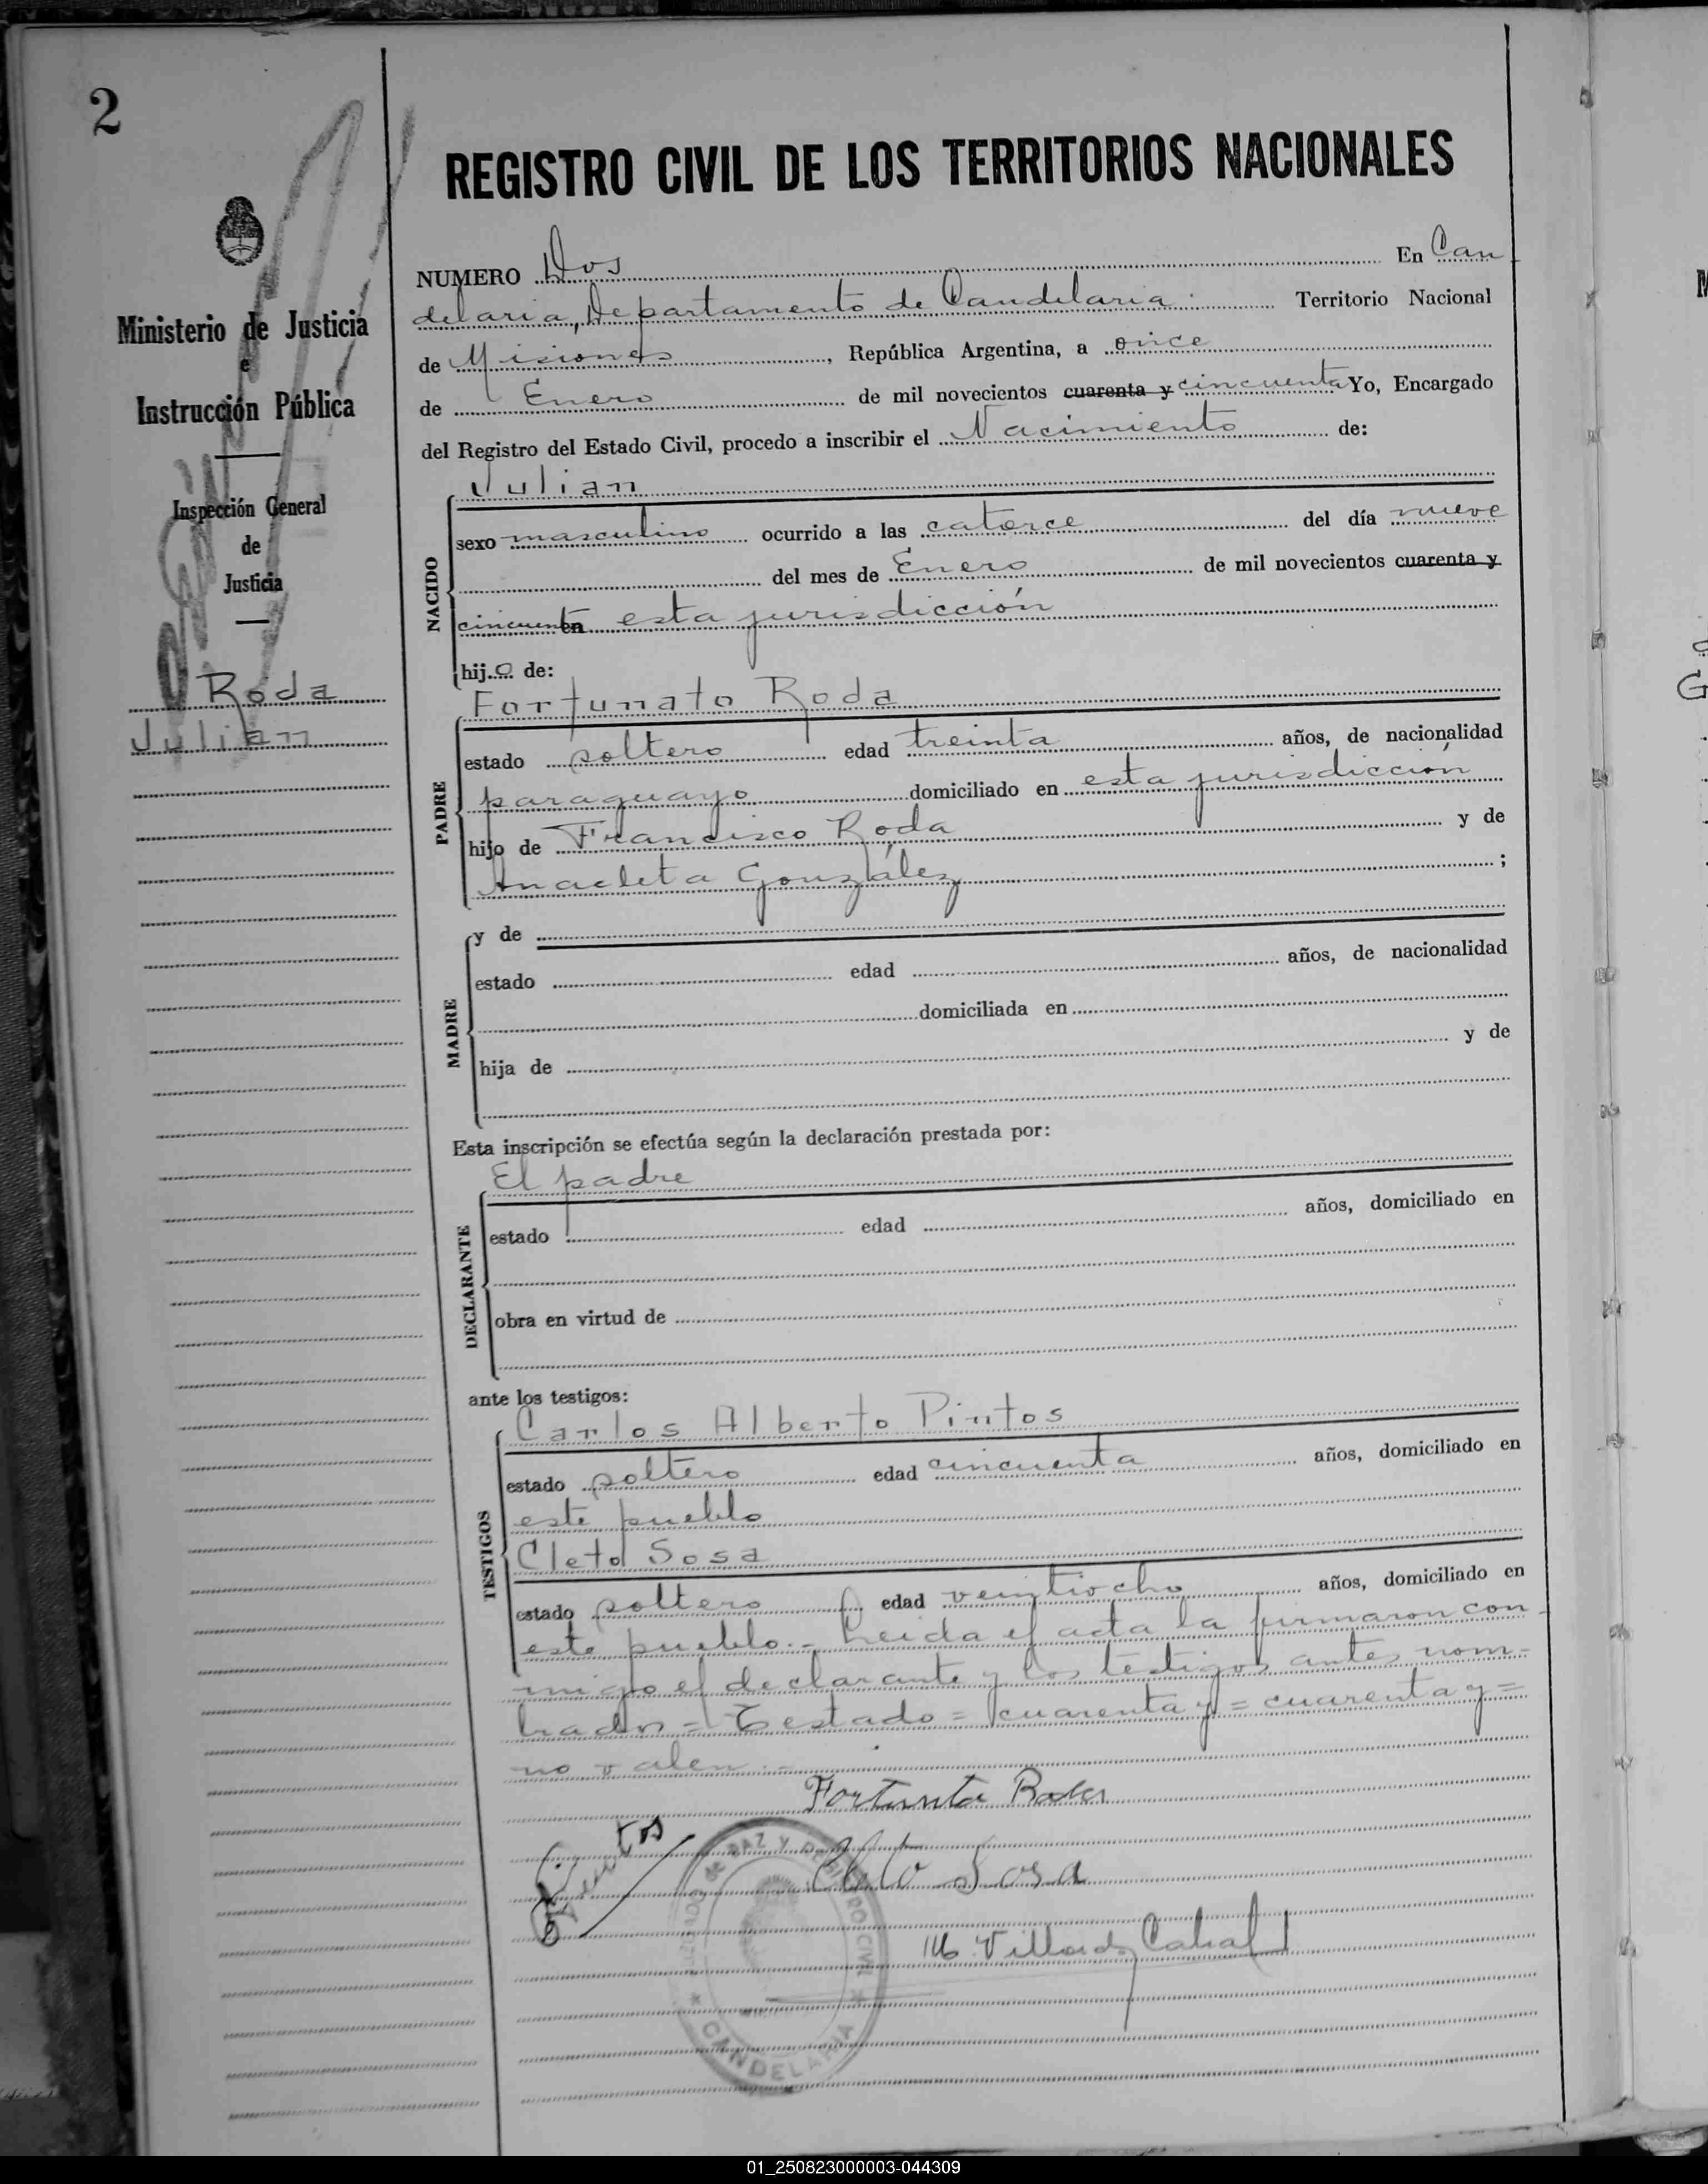 2
REGISTRO CIVIL DE LOS TERRITORIOS NACIONALES
Ministerio de Justicia
e
Instrucción Pública
Inspección General
de
Justicia
Roda
Julian
NUMERO Dos En Can-
delaria, Departamento de Candelaria. Territorio Nacional
de Misiones, República Argentina, a once
de Enero de mil novecientos cuarenta y cincuenta Yo, Encargado
del Registro del Estado Civil, procedo a inscribir el Nacimiento de:
Julian
NACIDO
sexo masculino ocurrido a las catorce del día nueve
del mes de Enero de mil novecientos cuarenta y
cincuenta en esta jurisdicción
hijo de:
Fortunato Roda
PADRE
estado soltero edad treinta años, de nacionalidad
paraguayo domiciliado en esta jurisdicción
hijo de Francisco Roda y de
Anacleta González ;
MADRE
y de
estado edad años, de nacionalidad
domiciliada en
hija de y de
Esta inscripción se efectúa según la declaración prestada por:
El padre
DECLARANTE
estado edad años, domiciliado en
obra en virtud de
ante los testigos:
Carlos Alberto Pintos
TESTIGOS
estado soltero edad cincuenta años, domiciliado en
este pueblo
Cleto Sosa
estado soltero edad veintiocho años, domiciliado en
este pueblo.- Leida el acta la firmaron con-
migo el declarante y los testigos antes nom-
brados = Testado = cuarenta y = cuarenta y =
no valen.-
Fortunato Roda
Pintos
Cleto Sosa
Villordo Cabal
DE PAZ Y REGISTRO CIVIL
* CANDELARIA *
01_250823000003-044309